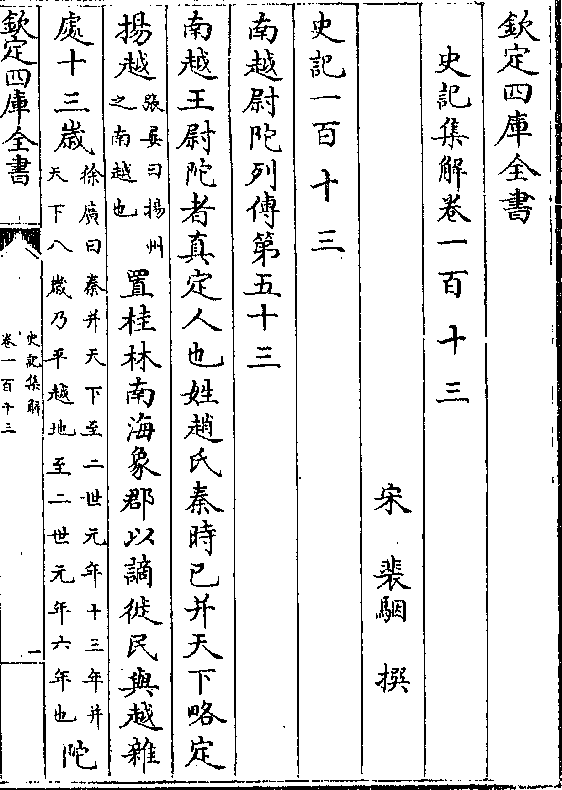 欽定四庫全書
史記集解卷一百十三
宋 裴駰 撰
史記一百十三
南越尉陀列傳第五十三
南越王尉陀者真定人也姓趙氏秦時已并天下略定
揚越張晏曰揚州之南越也置桂林南海象郡以謫徙民與越雜
處十三歲徐廣曰秦并天下至二世元年十三年并天下八歲乃平越地至二世元年六年也陀
欽定四庫全書
史記集解
卷一百十三
一